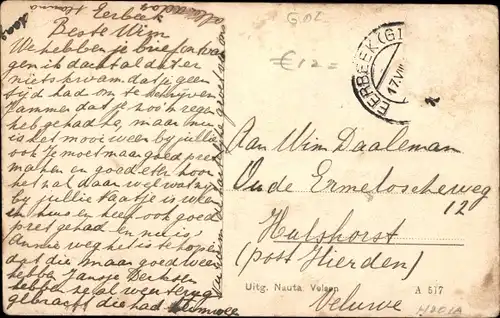 Eerbeek
Beste Wim
We hebben je brief ontvan
gen ik dacht al dat er
niets kwam dat je geen
tijd had om te schrijven
Jammer dat je zoo'n regen
heb gehad ha, maar nu
is het mooi weer by jullie
ook Je moet maar goed pret
maken en goed eten hoor
het zal daar wel wat zijn
by jullie
en huis en heb ook goed
pret gehad en nu is
Annie weg het is te hopen
dat die maar goed weer
hebbe Jansje Derksen
hebben ze al weer terug
gebracht die had heimwee
GDL
€12=
EERBEEK (GLD
17.VIII
Aan Wim Daaleman
Oude Ermeloscheweg
12
Hulshorst
(post Hierden)
Uitg. Nauta Velsen A 517
Veluwe